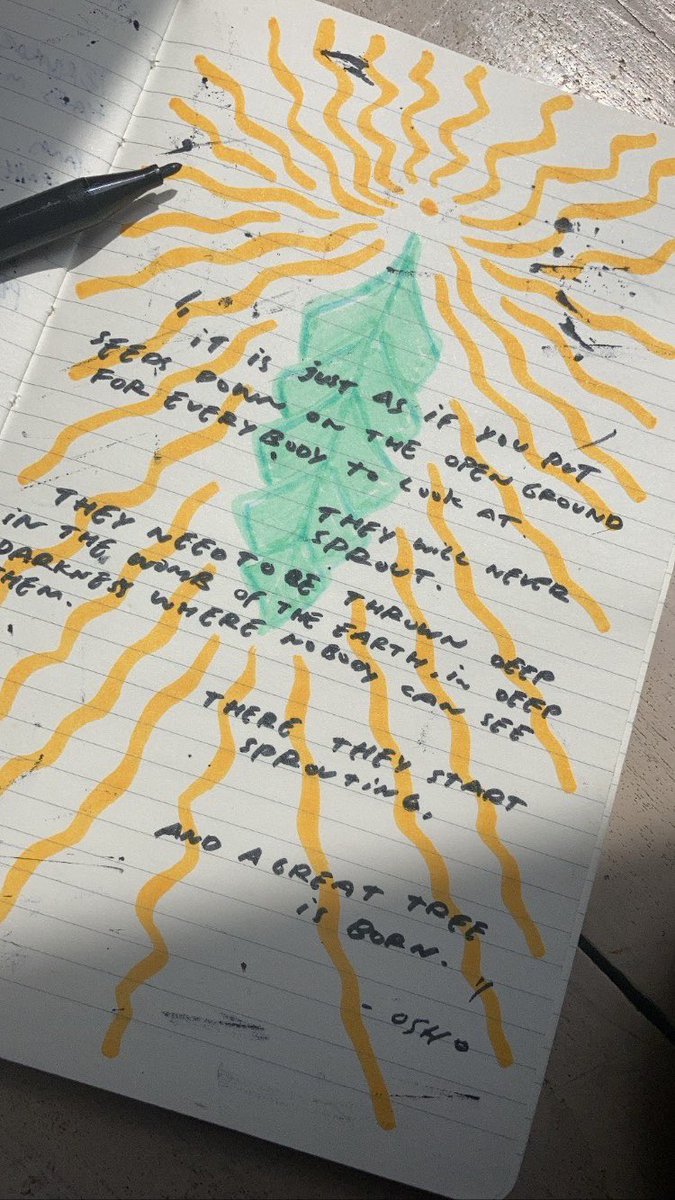 " IT IS JUST AS IF YOU PUT
SEEDS DOWN ON THE OPEN GROUND
FOR EVERYBODY TO LOOK AT.
THEY WILL NEVER
SPROUT.
THEY NEED TO BE THROWN DEEP
IN THE WOMB OF THE EARTH, IN DEEP
DARKNESS WHERE NOBODY CAN SEE
THEM.
THERE THEY START
SPROUTING.
AND A GREAT TREE
IS BORN. "
- OSHO